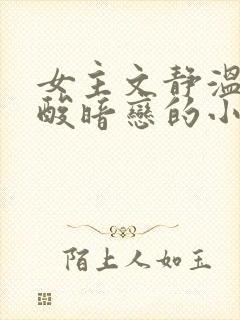 女主文静温
酸暗戀的小
陌上人如玉